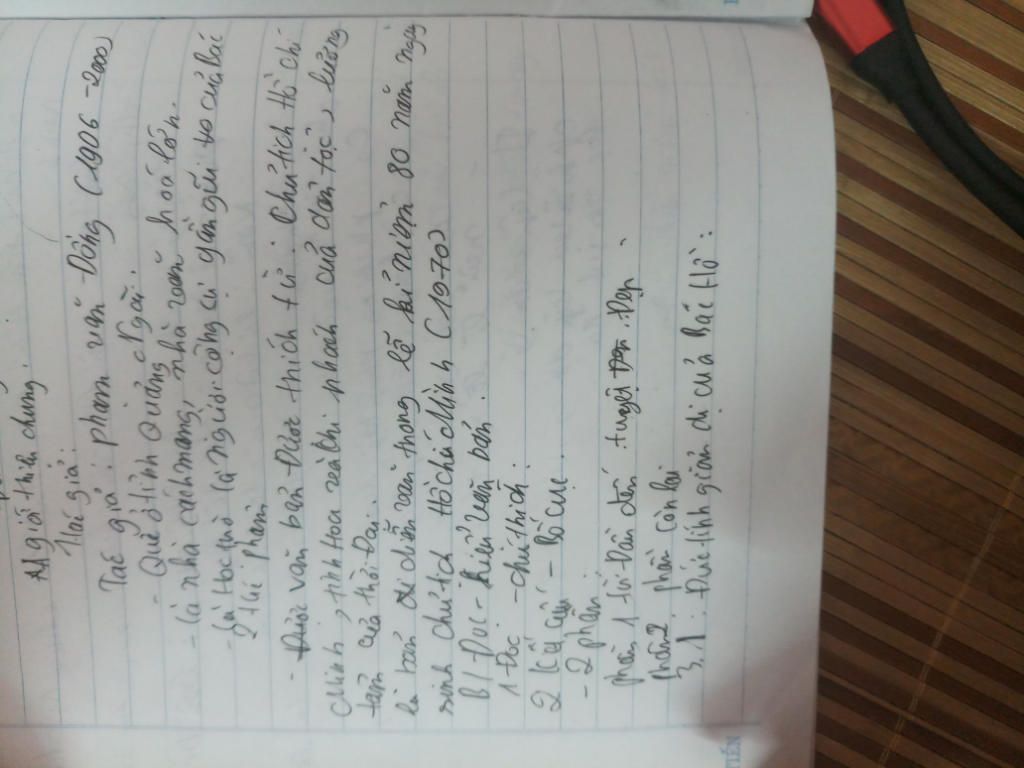 A/ giới thiệu chung.
Tác giả:
Tác giả: phạm văn Đồng (1906 - 2000)
- Quê ở tỉnh Quảng Ngãi.
- là nhà cách mạng, nhà văn hoá lớn.
- là học trò là người cộng sự gần gũi của Bác
2 tác phẩm
- Được văn bản Được trích từ: Chủ tịch Hồ Chí
Minh, tinh hoa và khí phách của dân tộc, lương
tâm của thời Đại.
là bài diễn văn trong lễ kỉ niệm 80 năm ngày
sinh chủ tịch Hồ Chí Minh (1970)
B/ Đọc - hiểu văn bản.
1 Đọc - chú thích.
2 kết cấu - Bố cục.
- 2 phần.
phần 1 từ Đầu đến tuyệt Đẹp.
phần 2 phần còn lại
3.1: Đức tính giản dị của Bác Hồ:
TIẾN